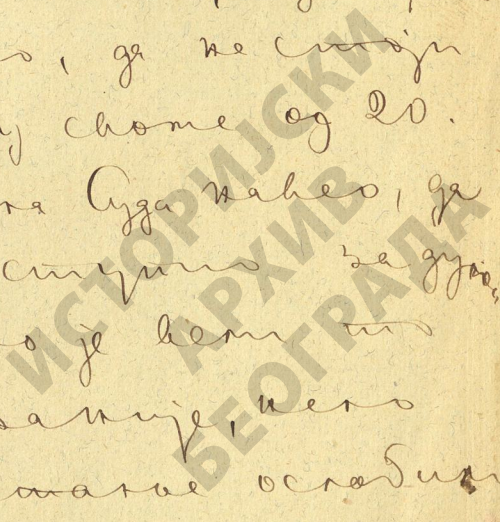 о, да не стоји
у своме од 20.
на Суда навео, да
ступио задуж
о је вели то
није, него
стање ослобили
ИСТОРИЈСКИ
АРХИВ
БЕОГРАДА